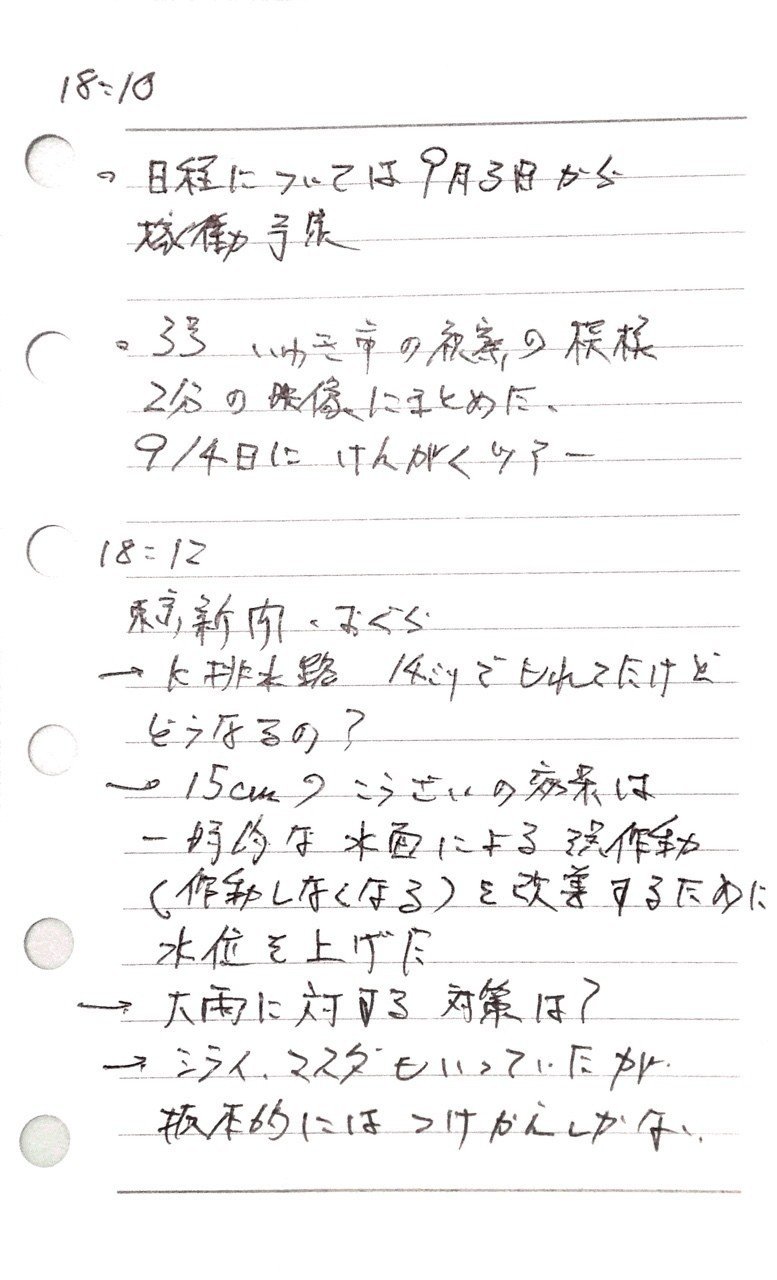 18:10
。日程については9月3日から
稼働予定
。3号 いわき市の視察の模様
2分の映像にまとめた、
9/4日に けんがくツアー
18:12
東京新聞・おぐら
→ K排水路 14ミリでもれてたけど
どうなるの?
→ 15cmの の変更は
一時的な水面による誤作動
(作動しなくなる)を改善するために
水位を上げた
→ 大雨に対する 対策は?
→ ミライ、マスダもいっていたが
抜本的には つけかえしかない、